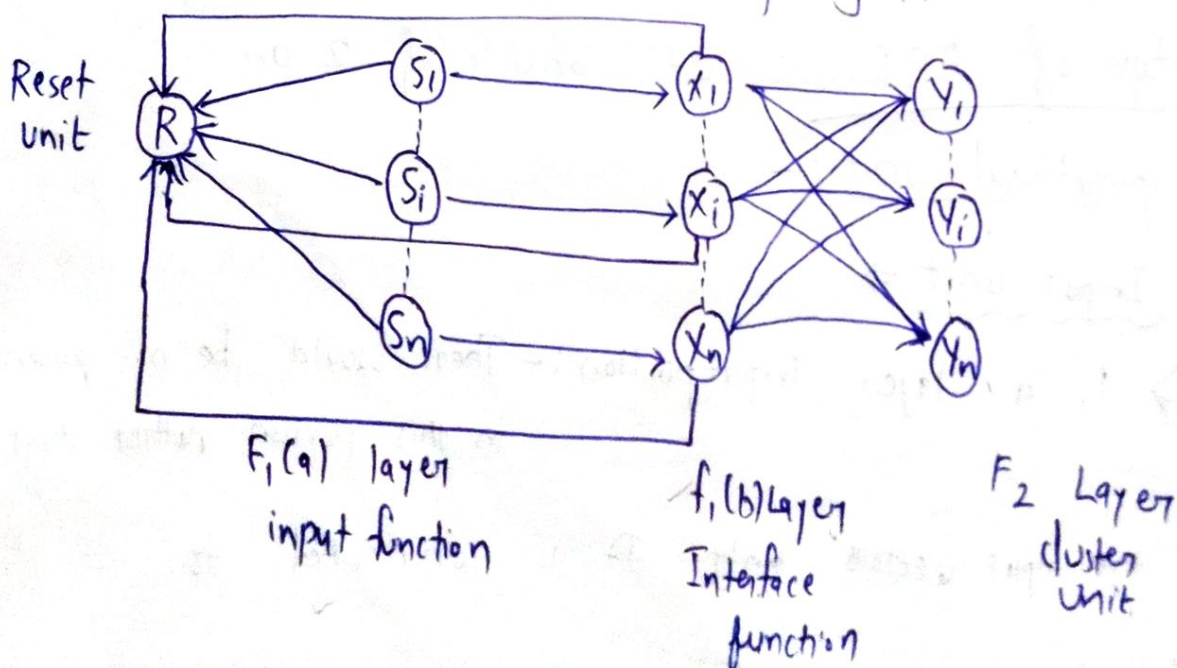 Reset
unit
R
S1
Si
Sn
X1
Xi
Xn
Y1
Yi
Yn
F1(a) layer
input function
f1(b) Layer
Interface
function
F2 Layer
cluster
Unit